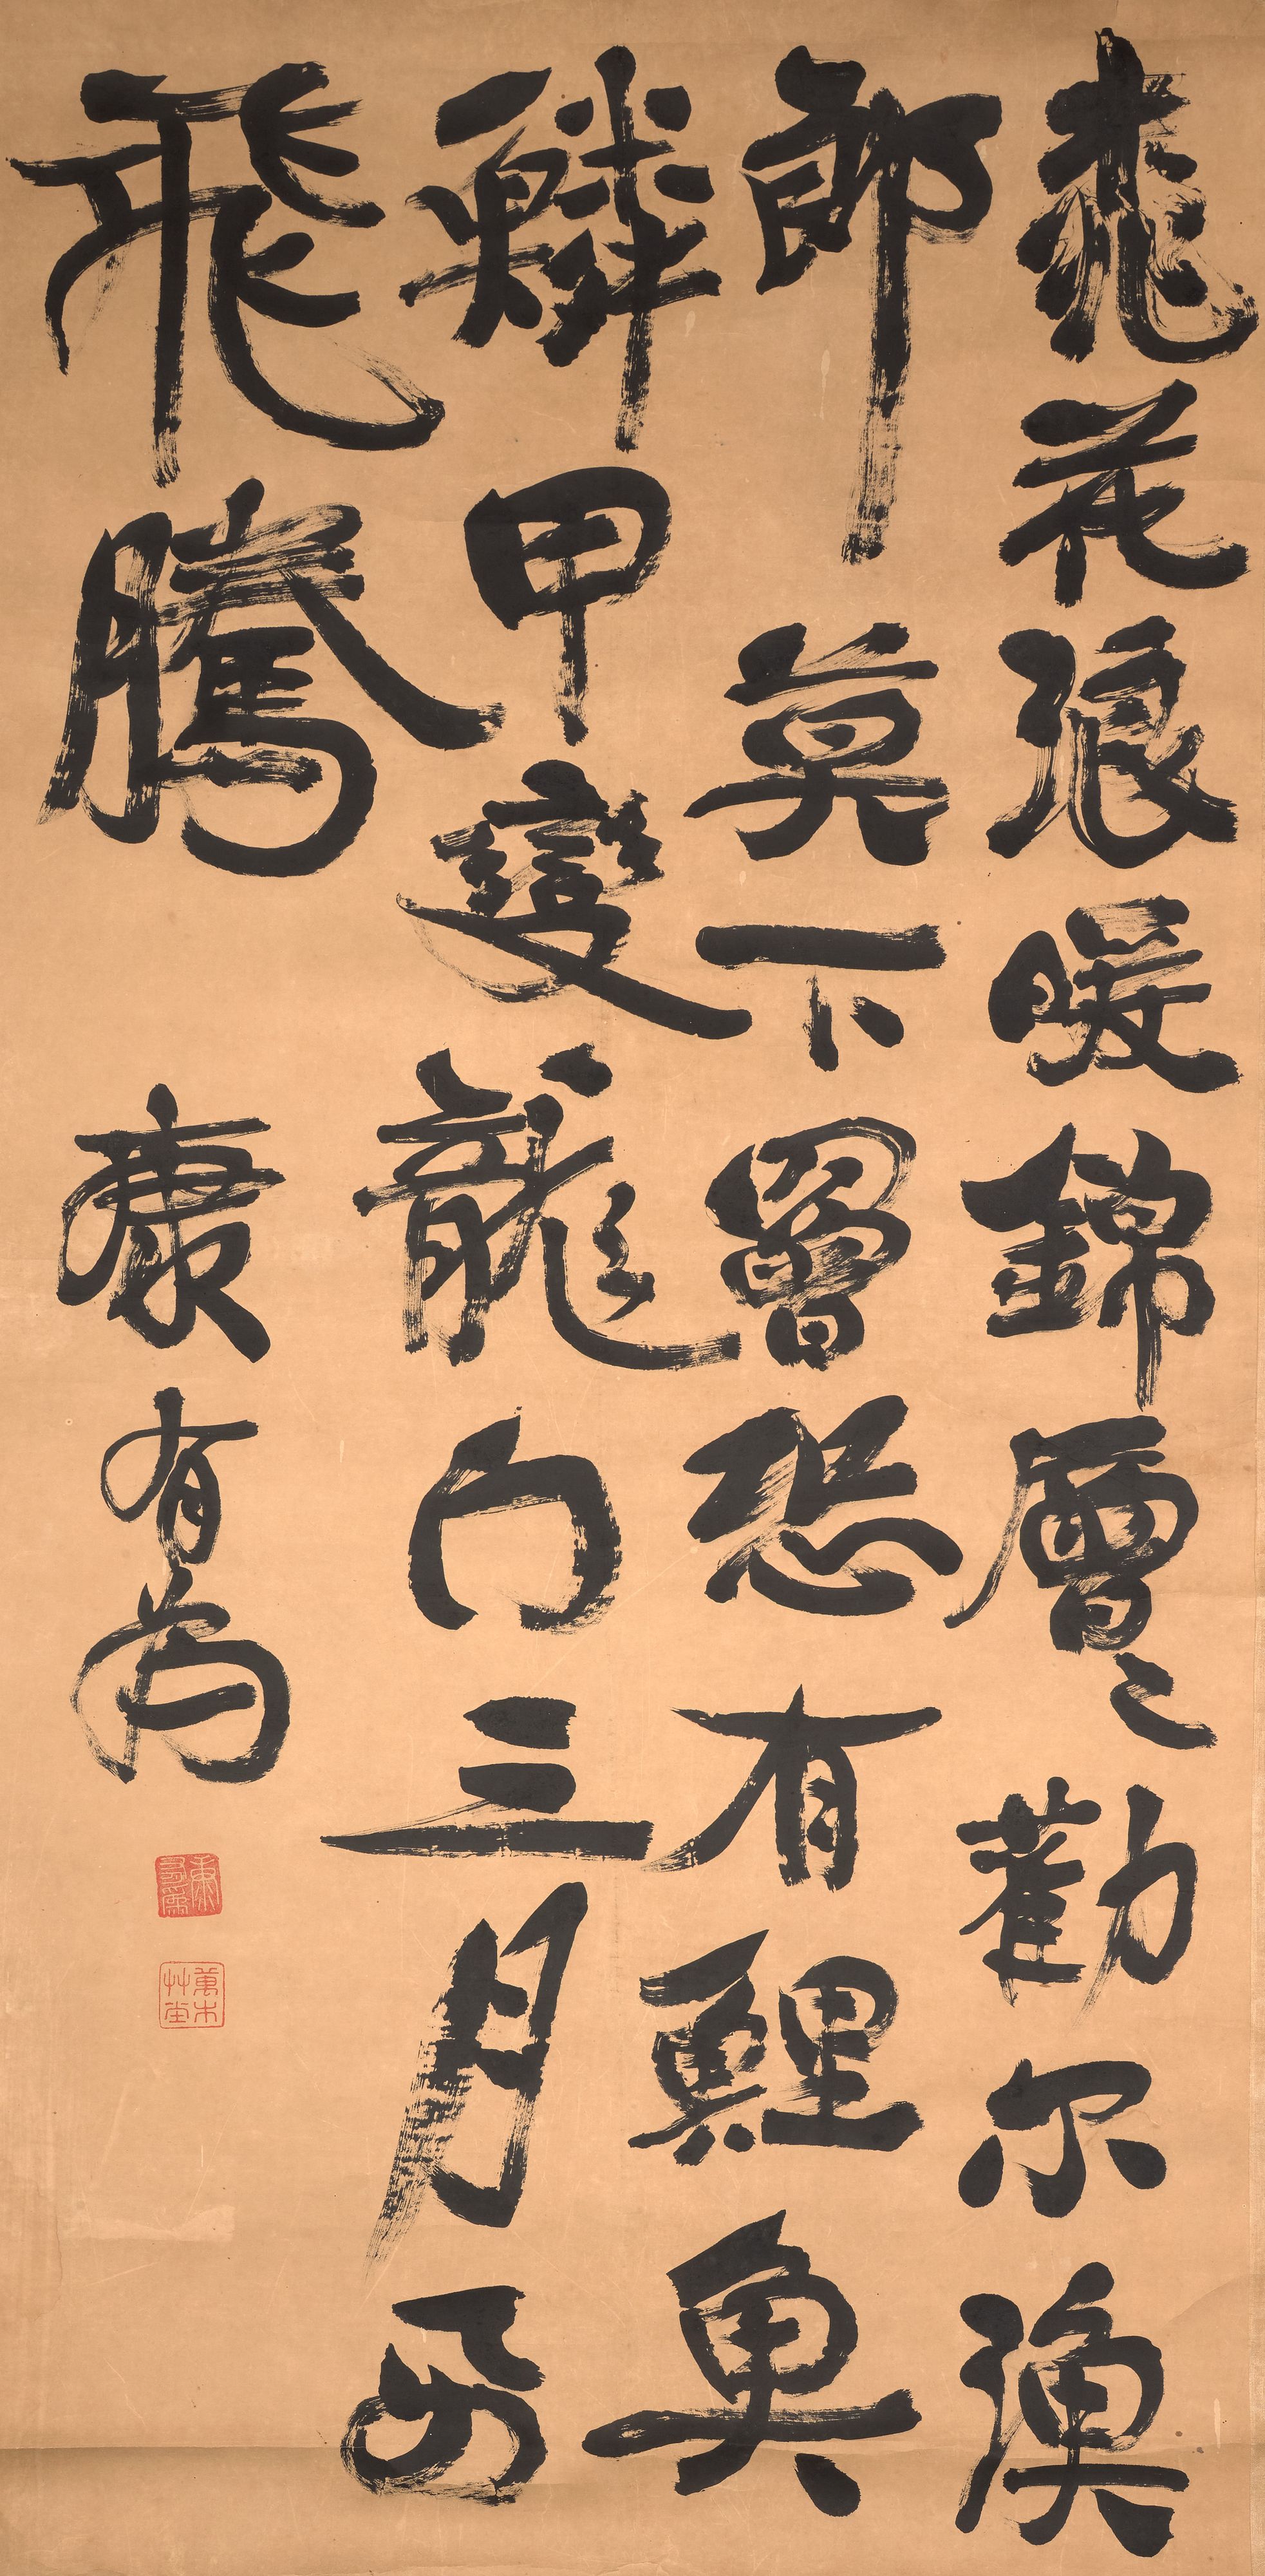 桃花浪暖錦層〻勸尔漁
郎莫下罾恐有鯉魚
鱗甲變龍門三月要
飛騰 康有為
康有為
萬木艸堂